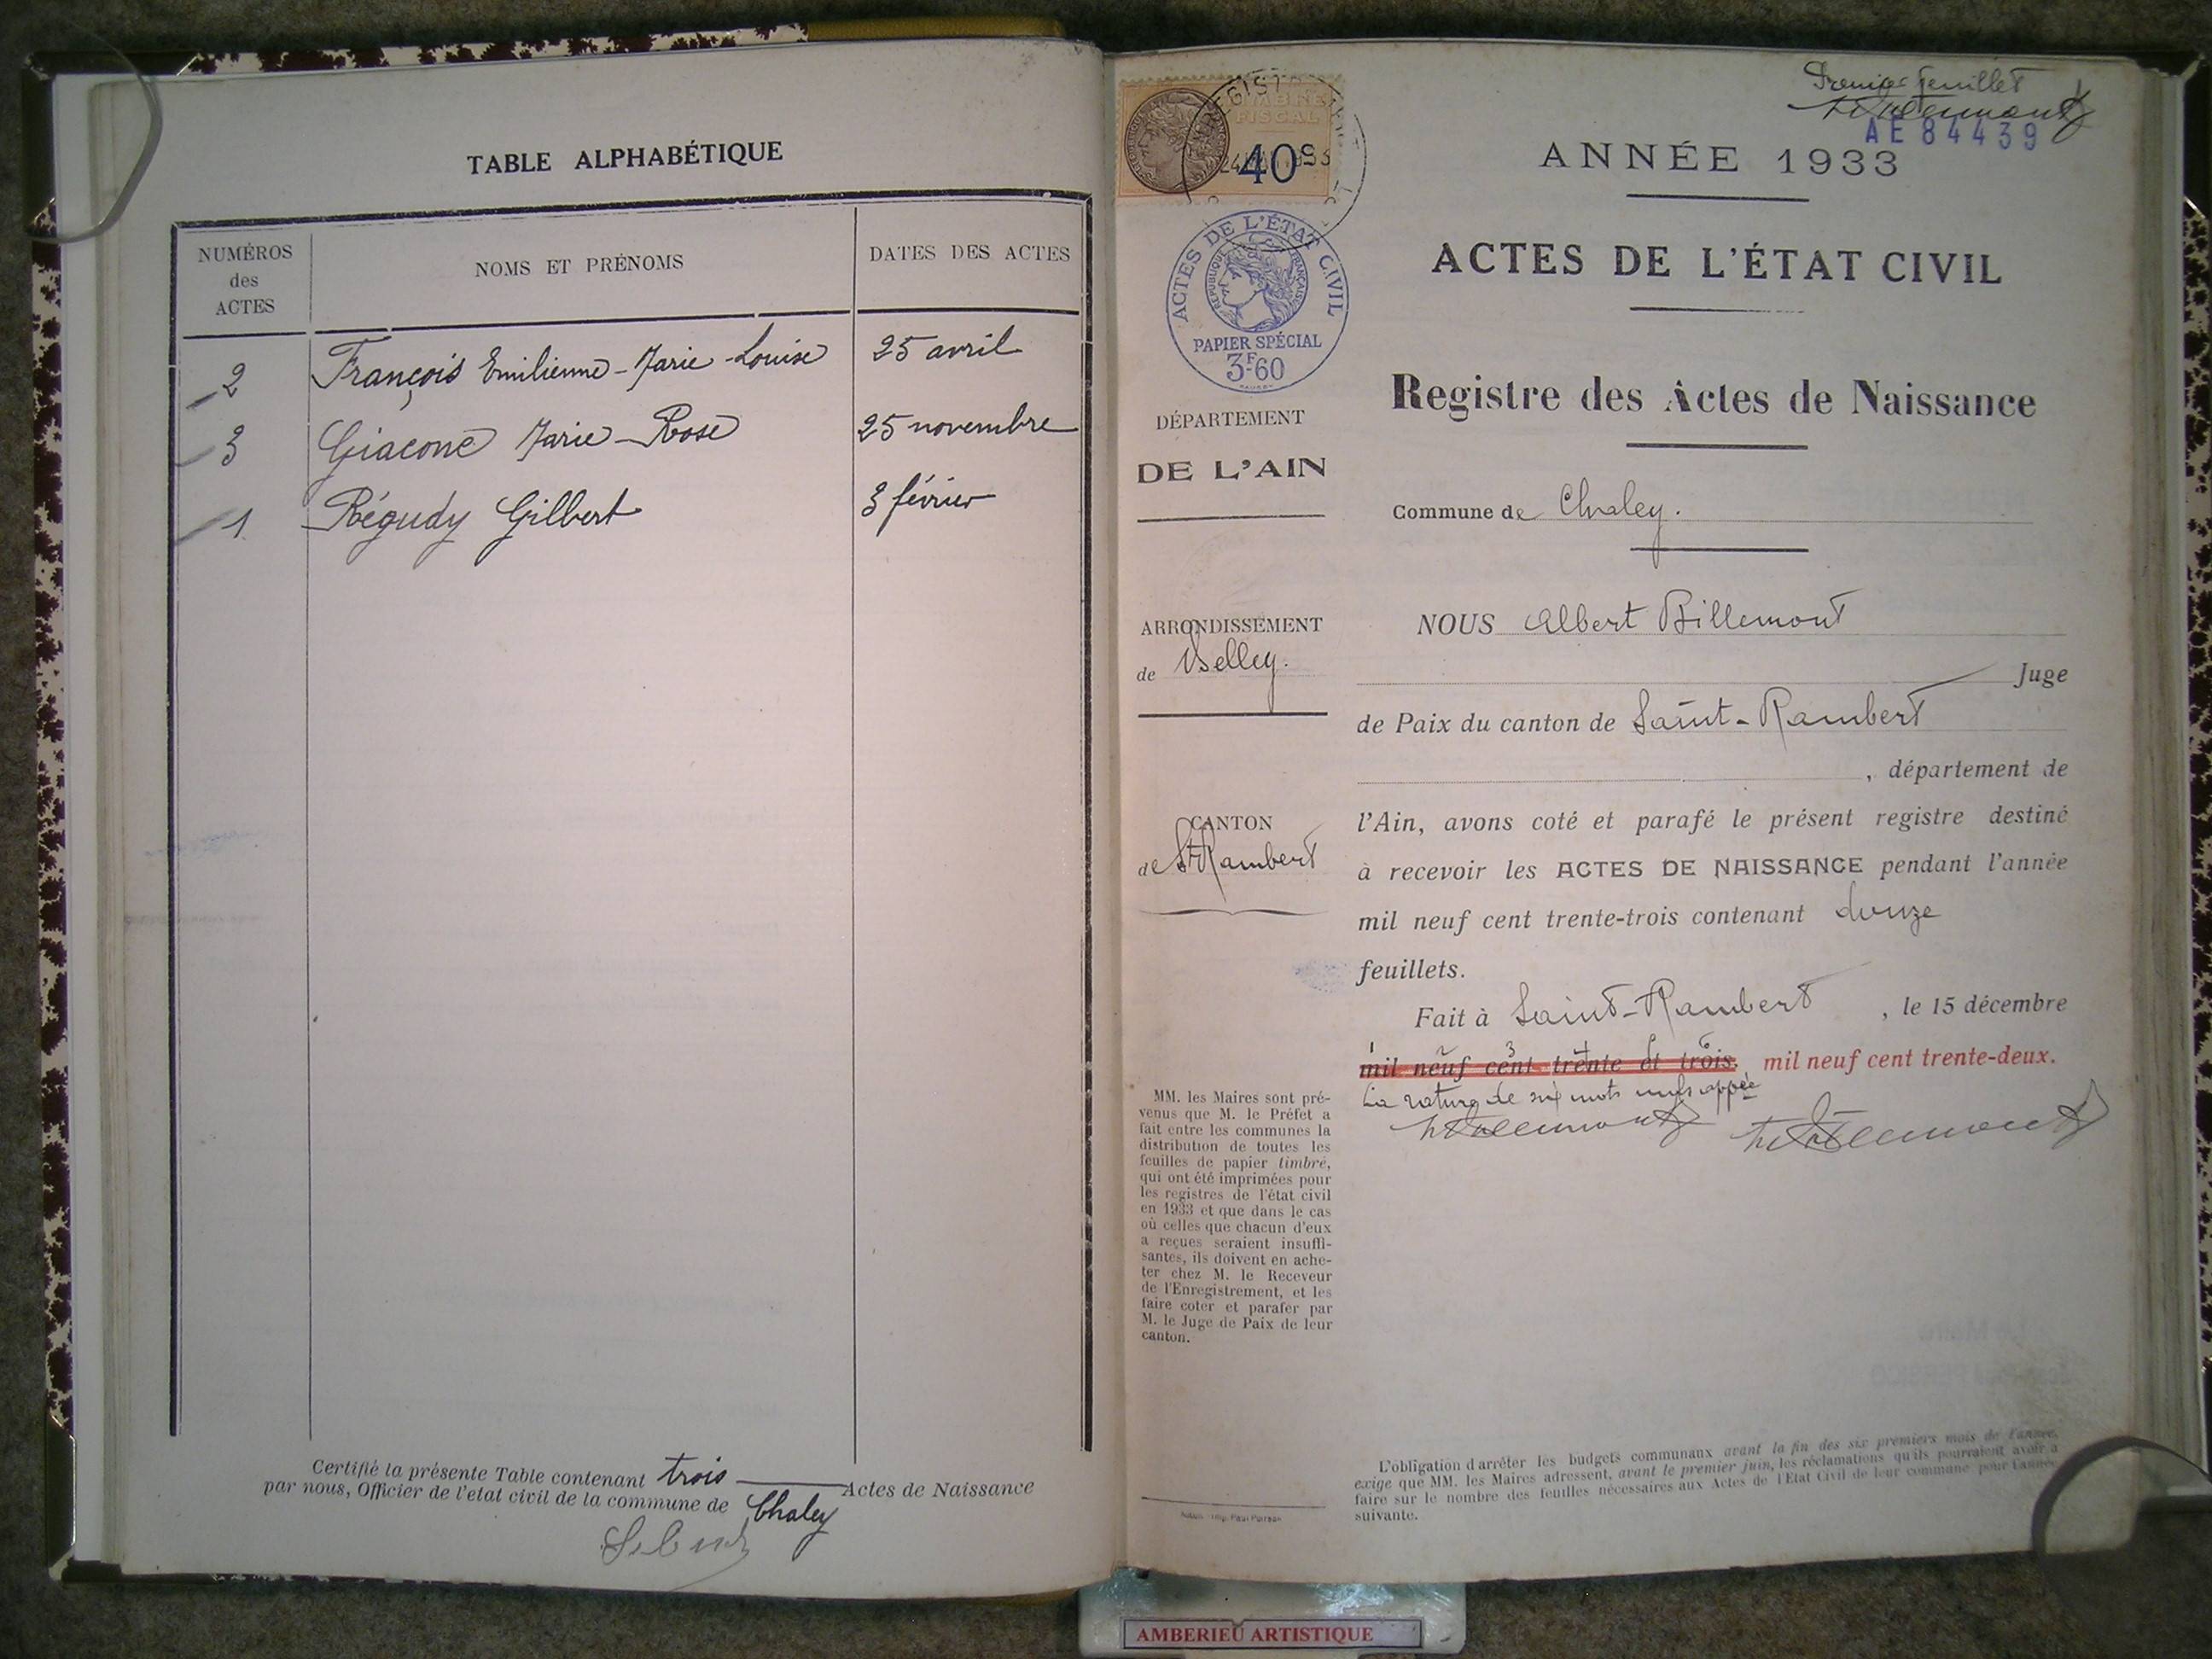 TABLE ALPHABÉTIQUE
NUMÉROS
des
ACTES
NOMS ET PRÉNOMS
DATES DES ACTES
2 François Emilienne-Marie-Louise 25 avril
3 Giacone Marie-Rose 25 novembre
1 Régudy Gilbert 3 février
Certifié la présente Table contenant trois Actes de Naissance
par nous, Officier de l'etat civil de la commune de Chaley
Premier feuillet
AE 84439
TIMBRE
FISCAL
40c
ACTES DE L'ÉTAT CIVIL
RÉPUBLIQUE FRANÇAISE
PAPIER SPÉCIAL
3F60
DÉPARTEMENT
DE L'AIN
ARRONDISSEMENT
de Belley.
CANTON
de St Rambert
MM. les Maires sont pré-
venus que M. le Préfet a
fait entre les communes la
distribution de toutes les
feuilles de papier timbré,
qui ont été imprimées pour
les registres de l'état civil
en 1933 et que dans le cas
où celles que chacun d'eux
a reçues seraient insuffi-
santes, ils doivent en ache-
ter chez M. le Receveur
de l'Enregistrement, et les
faire coter et parafer par
M. le Juge de Paix de leur
canton.
ANNÉE 1933
ACTES DE L'ÉTAT CIVIL
Registre des Actes de Naissance
Commune de Chaley.
NOUS Albert Billemont
Juge
de Paix du canton de Saint-Rambert
, département de
l'Ain, avons coté et parafé le présent registre destiné
à recevoir les ACTES DE NAISSANCE pendant l'année
mil neuf cent trente-trois contenant douze
feuillets.
Fait à Saint-Rambert , le 15 décembre
1 2 3 4 5 6
mil neuf cent trente et trois. mil neuf cent trente-deux.
La rature de six mots nuls appée
L'obligation d'arrêter les budgets communaux avant la fin des six premiers mois de l'année,
exige que MM. les Maires adressent, avant le premier juin, les réclamations qu'ils pourraient avoir à
faire sur le nombre des feuilles nécessaires aux Actes de l'Etat Civil de leur commune pour l'année
suivante.
AMBERIEU ARTISTIQUE